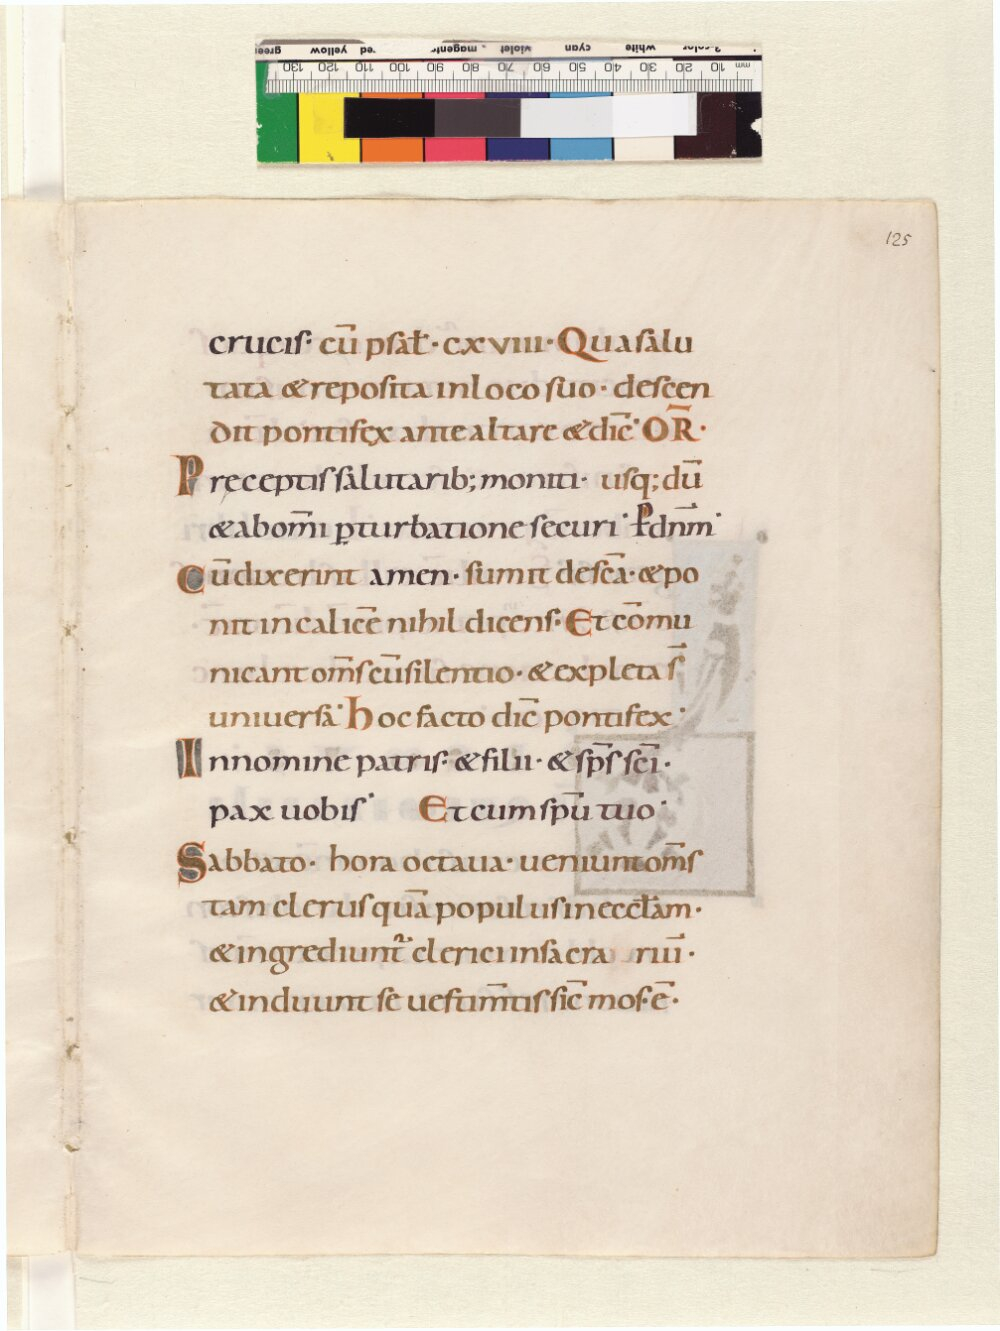 green yellow red magenta violet cyan white 3-color
130 120 110 100 90 80 70 60 50 40 30 20 10 mm
125
crucis· cū psał· cxviii· Qua salu
tata & reposita in loco suo· descen
dit pontifex ante altare & dic̄· OR̄·
Preceptis salutarib; moniti· usq; dū
& ab om̄i ꝑturbatione securi· P dn̄m·
Cū dixerint amen· sumit de sc̄a· & po
nit in calicē nihil dicens· Et cōmu
nicant om̄s cū silentio· & expleta s̄
uniuersa· hoc facto dic̄ pontifex·
In nomine patris· & filii· & sp̄s sc̄i·
pax uobis· Et cum spū tuo·
Sabbato· hora octaua· ueniunt om̄s
tam clerus quā populus in eccłam·
& ingrediunt̄ clerici in sacra riū·
& induunt se uestim̄tis sic̄ mos· ē·